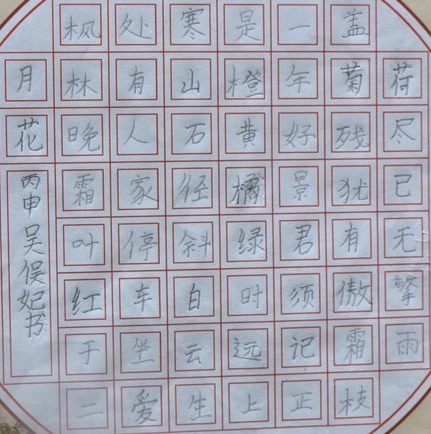 荷尽已无擎雨
盖菊残犹有傲霜枝
一年好景君须记正
是橙黄橘绿时远上
寒山石径斜白云生
处有人家停车坐爱
枫林晚霜叶红于二
月花
丙申吴俣妃书